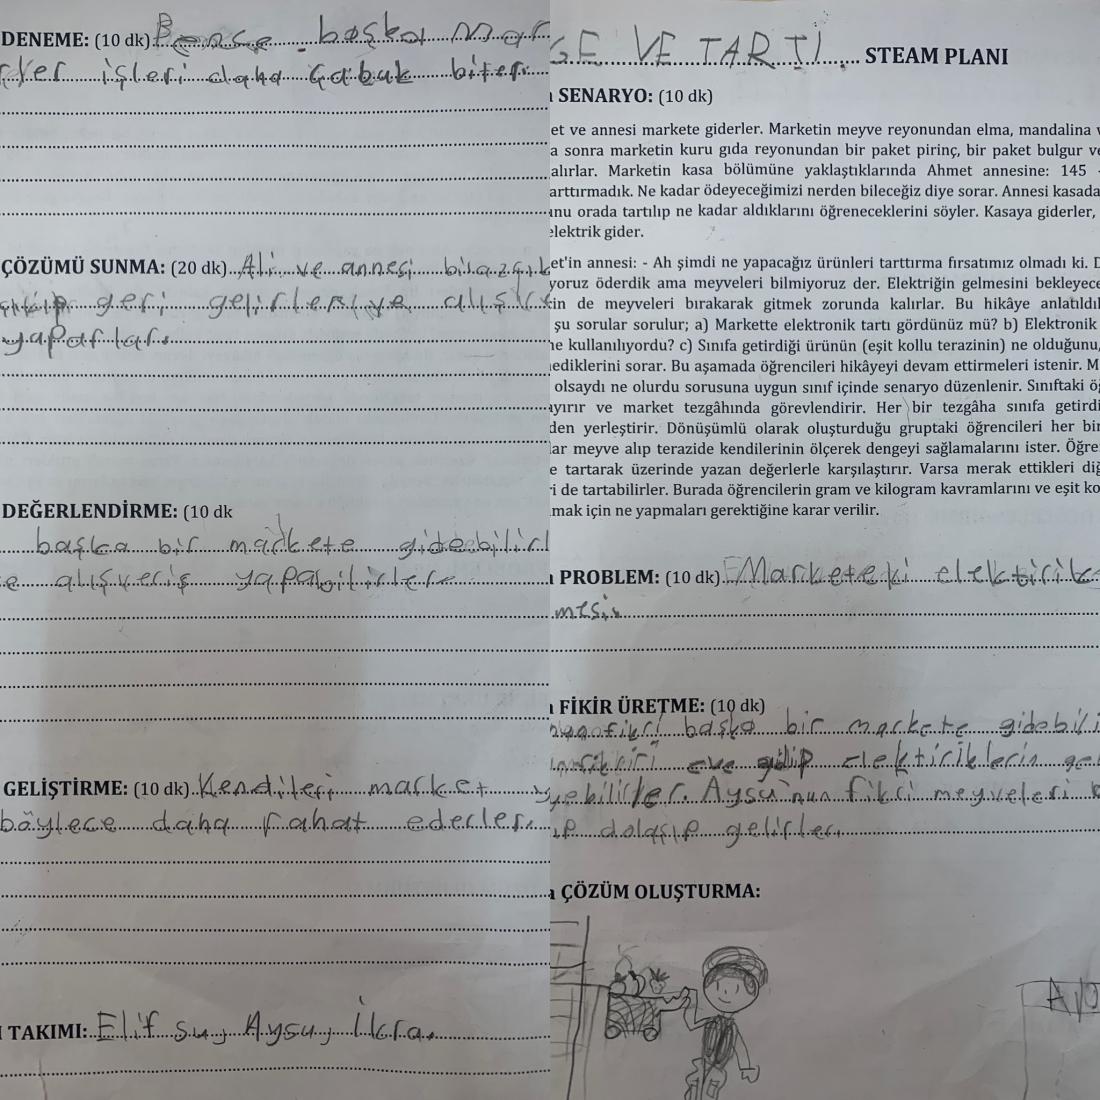 DENEME: (10 dk) Bence başka mar
işleri daha çabuk biter.
ÇÖZÜMÜ SUNMA: (20 dk) Ali ve annesi biraz
geri gelirler
yaparlar.
DEĞERLENDİRME: (10 dk
başka bir markete gidebilirl
e alışveriş yapabilirler.
GELİŞTİRME: (10 dk) Kendileri market
böylece daha rahat ederler.
TAKIMI: Elif su, Aysu, İkra.
GE VE TARTI STEAM PLANI
SENARYO: (10 dk)
et ve annesi markete giderler. Marketin meyve reyonundan elma, mandalina v
a sonra marketin kuru gıda reyonundan bir paket pirinç, bir paket bulgur ve
alırlar. Marketin kasa bölümüne yaklaştıklarında Ahmet annesine: 145 -
arttırmadık. Ne kadar ödeyeceğimizi nerden bileceğiz diye sorar. Annesi kasada
unu orada tartılıp ne kadar aldıklarını öğreneceklerini söyler. Kasaya giderler,
elektrik gider.
et'in annesi: - Ah şimdi ne yapacağız ürünleri tarttırma fırsatımız olmadı ki. D
yoruz öderdik ama meyveleri bilmiyoruz der. Elektriğin gelmesini bekleyece
in de meyveleri bırakarak gitmek zorunda kalırlar. Bu hikâye anlatıldıl
şu sorular sorulur; a) Markette elektronik tartı gördünüz mü? b) Elektronik
ne kullanılıyordu? c) Sınıfa getirdiği ürünün (eşit kollu terazinin) ne olduğunu,
ediklerini sorar. Bu aşamada öğrencileri hikâyeyi devam ettirmeleri istenir. M
olsaydı ne olurdu sorusuna uygun sınıf içinde senaryo düzenlenir. Sınıftaki öğ
ayırır ve market tezgâhında görevlendirir. Her bir tezgâha sınıfa getirdi
den yerleştirir. Dönüşümlü olarak oluşturduğu gruptaki öğrencileri her bir
ar meyve alıp terazide kendilerinin ölçerek dengeyi sağlamalarını ister. Öğre
e tartarak üzerinde yazan değerlerle karşılaştırır. Varsa merak ettikleri diğ
i de tartabilirler. Burada öğrencilerin gram ve kilogram kavramlarını ve eşit ko
mak için ne yapmaları gerektiğine karar verilir.
PROBLEM: (10 dk) Marketeki elektirik
mesi.
FİKİR ÜRETME: (10 dk)
fikri başka bir markete gidebili
eve gidip elektiriklerin gel
yebilirler. Aysu'nun fikri meyveleri
ıp dolaşıp gelirler.
ÇÖZÜM OLUŞTURMA: